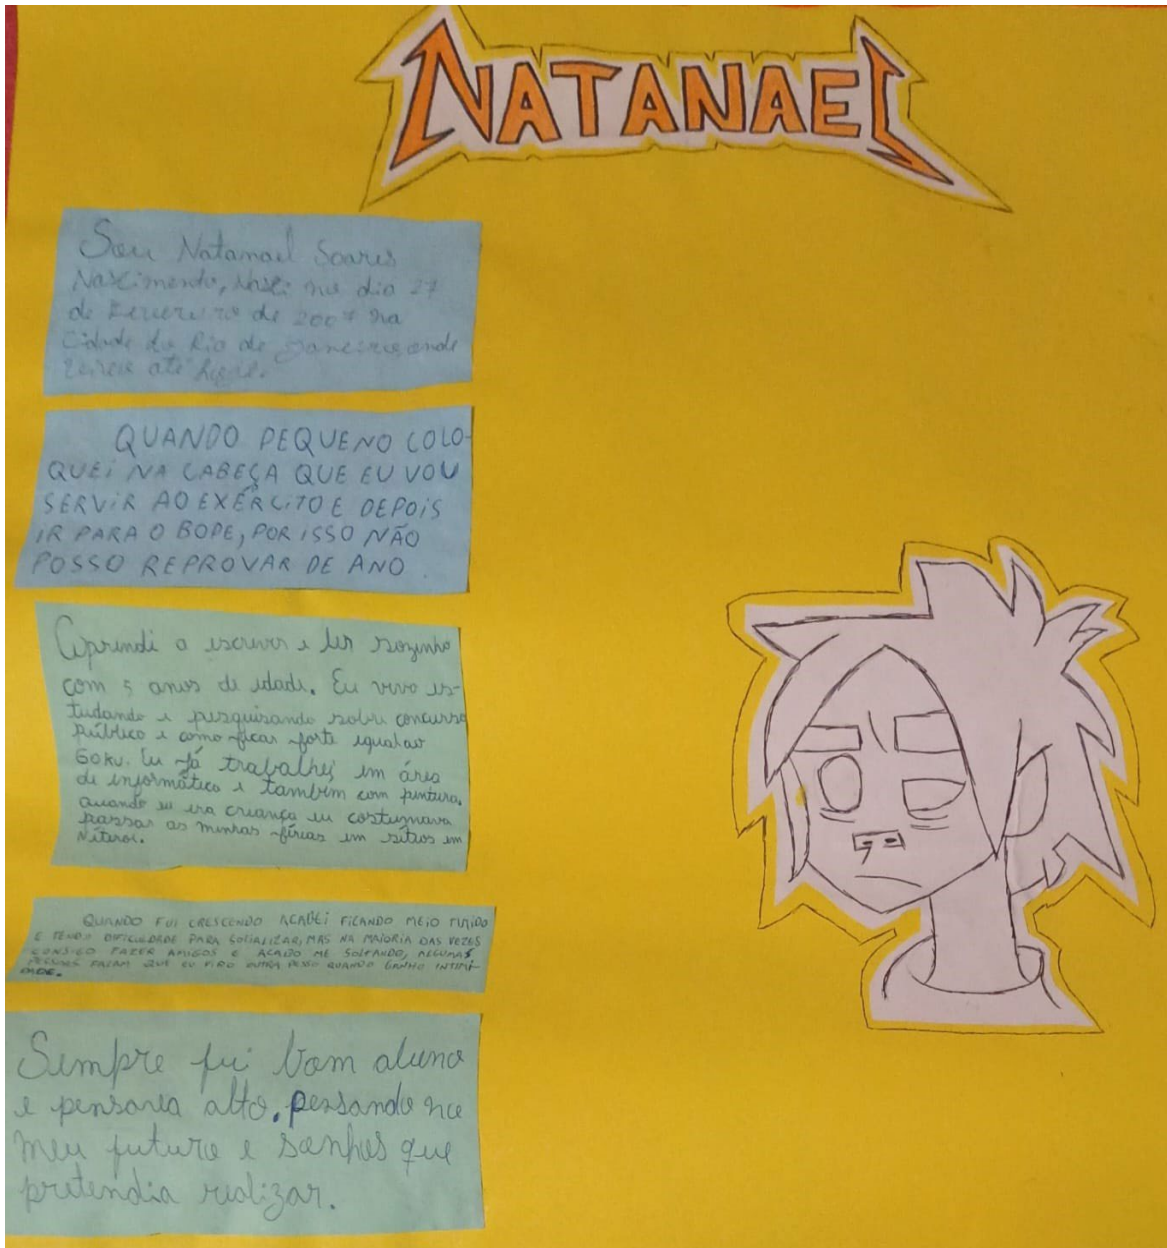 NATANAEL
Sou Natanael Soares
Nascimento, nasci no dia 27
de Fevereiro de 2007 na
Cidade do Rio de Janeiro, onde
vivo até hoje.
QUANDO PEQUENO COLO-
QUEI NA CABEÇA QUE EU VOU
SERVIR AO EXÉRCITO E DEPOIS
IR PARA O BOPE, POR ISSO NÃO
POSSO REPROVAR DE ANO
Aprendi a escrever e ler sozinho
com 5 anos de idade. Eu vivo es-
tudando e pesquisando sobre concurso
público e como ficar forte igual ao
Goku. Eu já trabalhei em área
de informática e também com pintura.
quando eu era criança eu costumava
passar as minhas férias em sítios em
Niteroi.
QUANDO FUI CRESCENDO ACABEI FICANDO MEIO TIMIDO
E TENDO DIFICULDADE PARA SOCIALIZAR, MAS NA MAIORIA DAS VEZES
CONSIGO FAZER AMIGOS E ACABO ME SOLTANDO, ALGUMAS
PESSOAS FALAM QUE EU VIRO OUTRA QUANDO GANHO INTIMI-
DADE.
Sempre fui bom aluno
e pensava alto, pensando no
meu futuro e sonhos que
pretendia realizar.